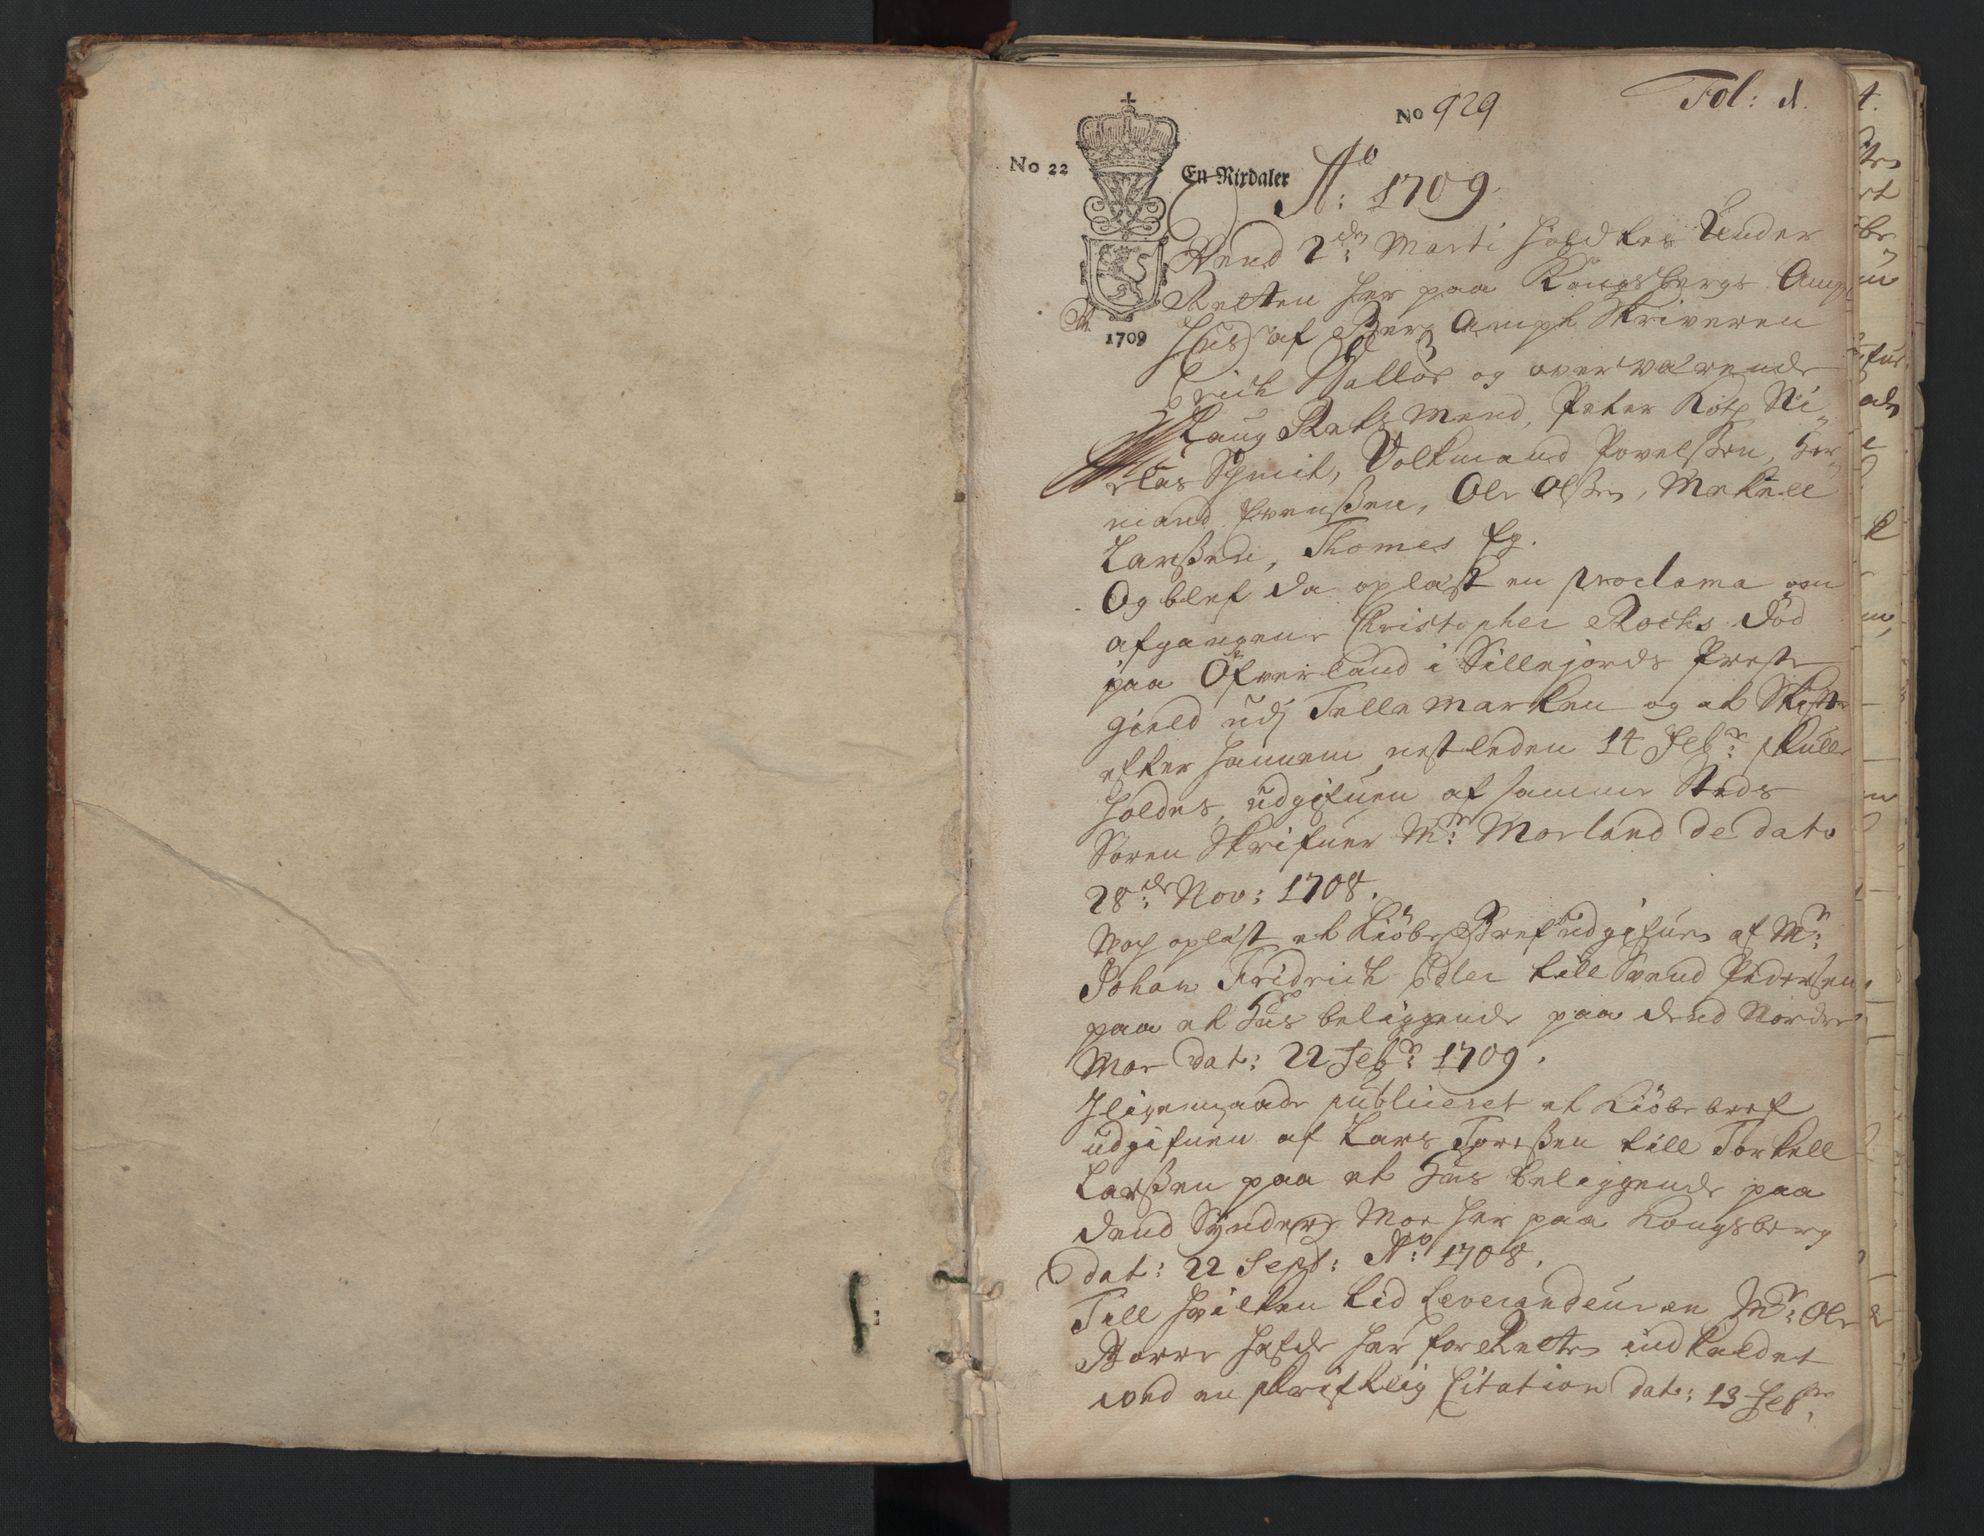 Fol: 1.
No 929
No 22
En Rixdaler
Ao: 1709
1709
Dend 2den Marti holdtes Under
Retten her paa Kongsbergs Ampt
Huus af Berg Ampt Skriveren
Erich og overværende
Laug Rets Mend, Peter Ni-
clas Schmit, Volkmand Povelßen, Her-
mand Evenßen, Ole Olßen, Mekell
Larßen, Thomes
Og blef da oplæst en proclama om
afgangene Christopher Rochs død
paa Öfverland i Sillejords Preste
gield udj Tellemarken og at Skifte
efter hannem nestleden 14 Febr: skulle
holdes, udgifuen af samme Steds
Soren Skrifuer Mr: Morland de dato
28de: Nov: 1708.
Noch oplæst et Kiöbe Bref udgifuen af Mr:
Johan Fridrich Edler till Svend Pedersen
paa et Huus beliggende paa dend Nordre
Moe dat: 22 Febr: 1709.
Jligemaade publiceret et Kiöbe bref
udgifuen af Lars Toreßen till Torkell
Larßen paa et Huus beliggende paa
dend Syndere Moe her paa Kongsberg
dat: 22 Sept: Ao: 1708.
Till hvilken tid Leverandeuren Mr: Ole
Borre hafde her for Retten indkaldet
ved en skriftlig Citation dat: 13 Febr: